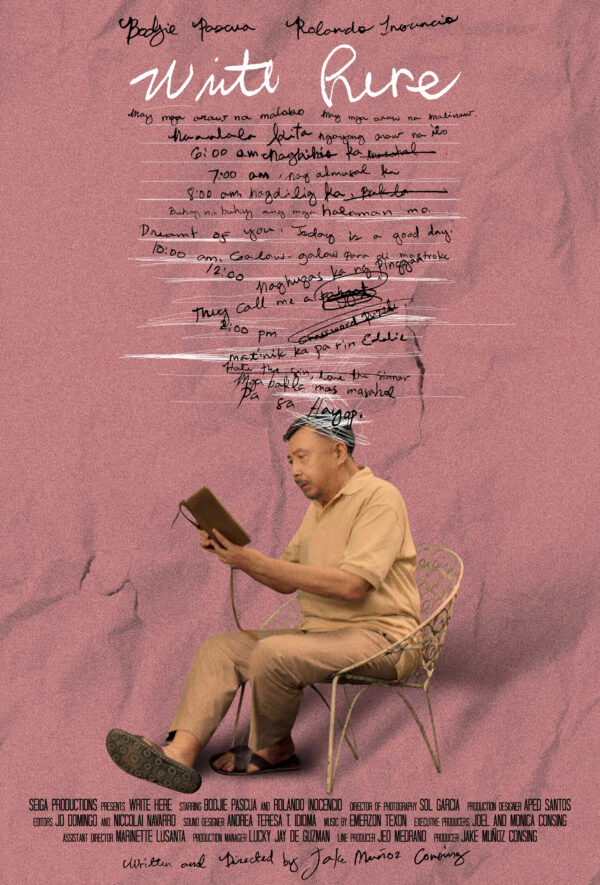 Bodjie Pascua Rolando Inocencio
Write Here
May mga araw na malabo May mga araw na malinaw
Naaalala kita ngayong araw na ito
6:00 am nagbihis ka
7:00 am, nag almusal ka
8:00 am nagdilig ka,
Buhay na buhay ang mga halaman mo.
Dreamt of you. Today is a good day.
10:00 am. Galaw-galaw para di mastroke
12:00 naghugas ka ng pinggan
They call me a
2:00 pm crossword puzzle
matinik ka pa rin Eddie
Hate the sin, love the sinner
Mga bakla mas masahol
pa sa Hayop.
SEIGA PRODUCTIONS PRESENTS WRITE HERE STARRING BODJIE PASCUA AND ROLANDO INOCENCIO DIRECTOR OF PHOTOGRAPHY SOL GARCIA PRODUCTION DESIGNER APED SANTOS
EDITORS JD DOMINGO AND NICCOLAI NAVARRO SOUND DESIGNER ANDREA TERESA T. IDIOMA MUSIC BY EMERZON TEXON EXECUTIVE PRODUCERS JOEL AND MONICA CONSING
ASSISTANT DIRECTOR MARINETTE LUSANTA PRODUCTION MANAGER LUCKY JAY DE GUZMAN LINE PRODUCER JED MEDRANO PRODUCER JAKE MUÑOZ CONSING
Written and Directed by Jake Muñoz Consing